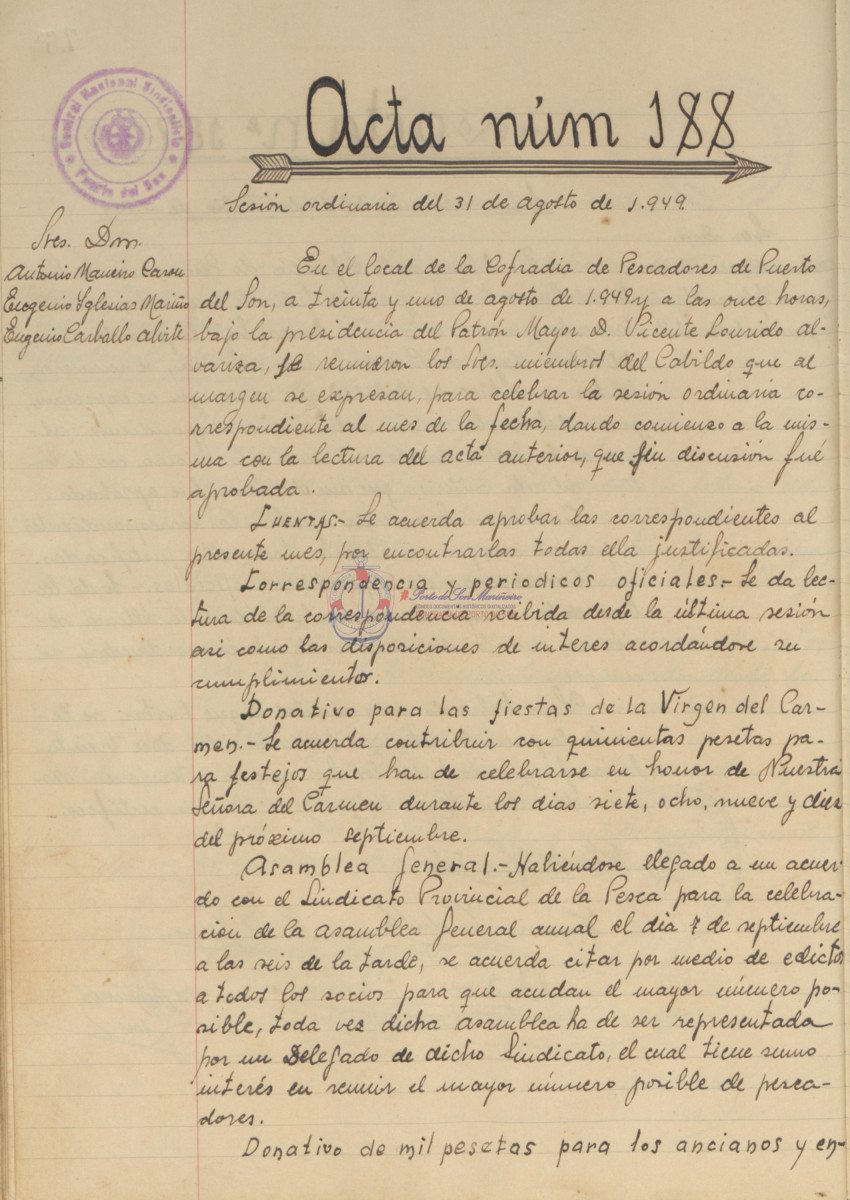 Central Nacional Sindicalista
Puerto del Son
Acta núm 188
Sesión ordinaria del 31 de agosto de 1.949.
Sres. Dm.
Antonio Maneiro Carou
Eugenio Iglesias Mariño
Eugenio Carballo
En el local de la Cofradia de Pescadores de Puerto
del Son, a treinta y uno de agosto de 1.949 y a las once horas,
bajo la presidencia del Patrón Mayor D. Vicente Lourido al-
variza, se reunieron los Sres. miembros del Cabildo que al
margen se expresan, para celebrar la sesión ordinaria co-
rrespondiente al mes de la fecha, dando comienzo a la mis-
ma con la lectura del acta anterior, que sin discusión fué
aprobada.
Cuentas.- Se acuerda aprobar las correspondientes al
presente mes, por encontrarlas todas ella justificadas.
Correspondencia y periodicos oficiales.- Se da lec-
tura de la correspondencia recibida desde la última sesión
asi como las disposiciones de interes acordándose su
cumplimiento.
Porto do Son Mariñeiro
Donativo para las fiestas de la Virgen del Car-
men.- Se acuerda contribuir con quinientas pesetas pa-
ra festejos que han de celebrarse en honor de Nuestra
Señora del Carmen durante los dias siete, ocho, nueve y diez
del próximo septiembre.
Asamblea General.- Habiéndose llegado a un acuer-
do con el Sindicato Provincial de la Pesca para la celebra-
ción de la asamblea General anual el dia 7 de septiembre
a las seis de la tarde, se acuerda citar por medio de edictos
a todos los socios para que acudan el mayor número po-
sible, toda vez dicha asamblea ha de ser representada
por un Delegado de dicho Sindicato, el cual tiene sumo
interés en reunir el mayor número posible de pesca-
dores.
Donativo de mil pesetas para los ancianos y en-